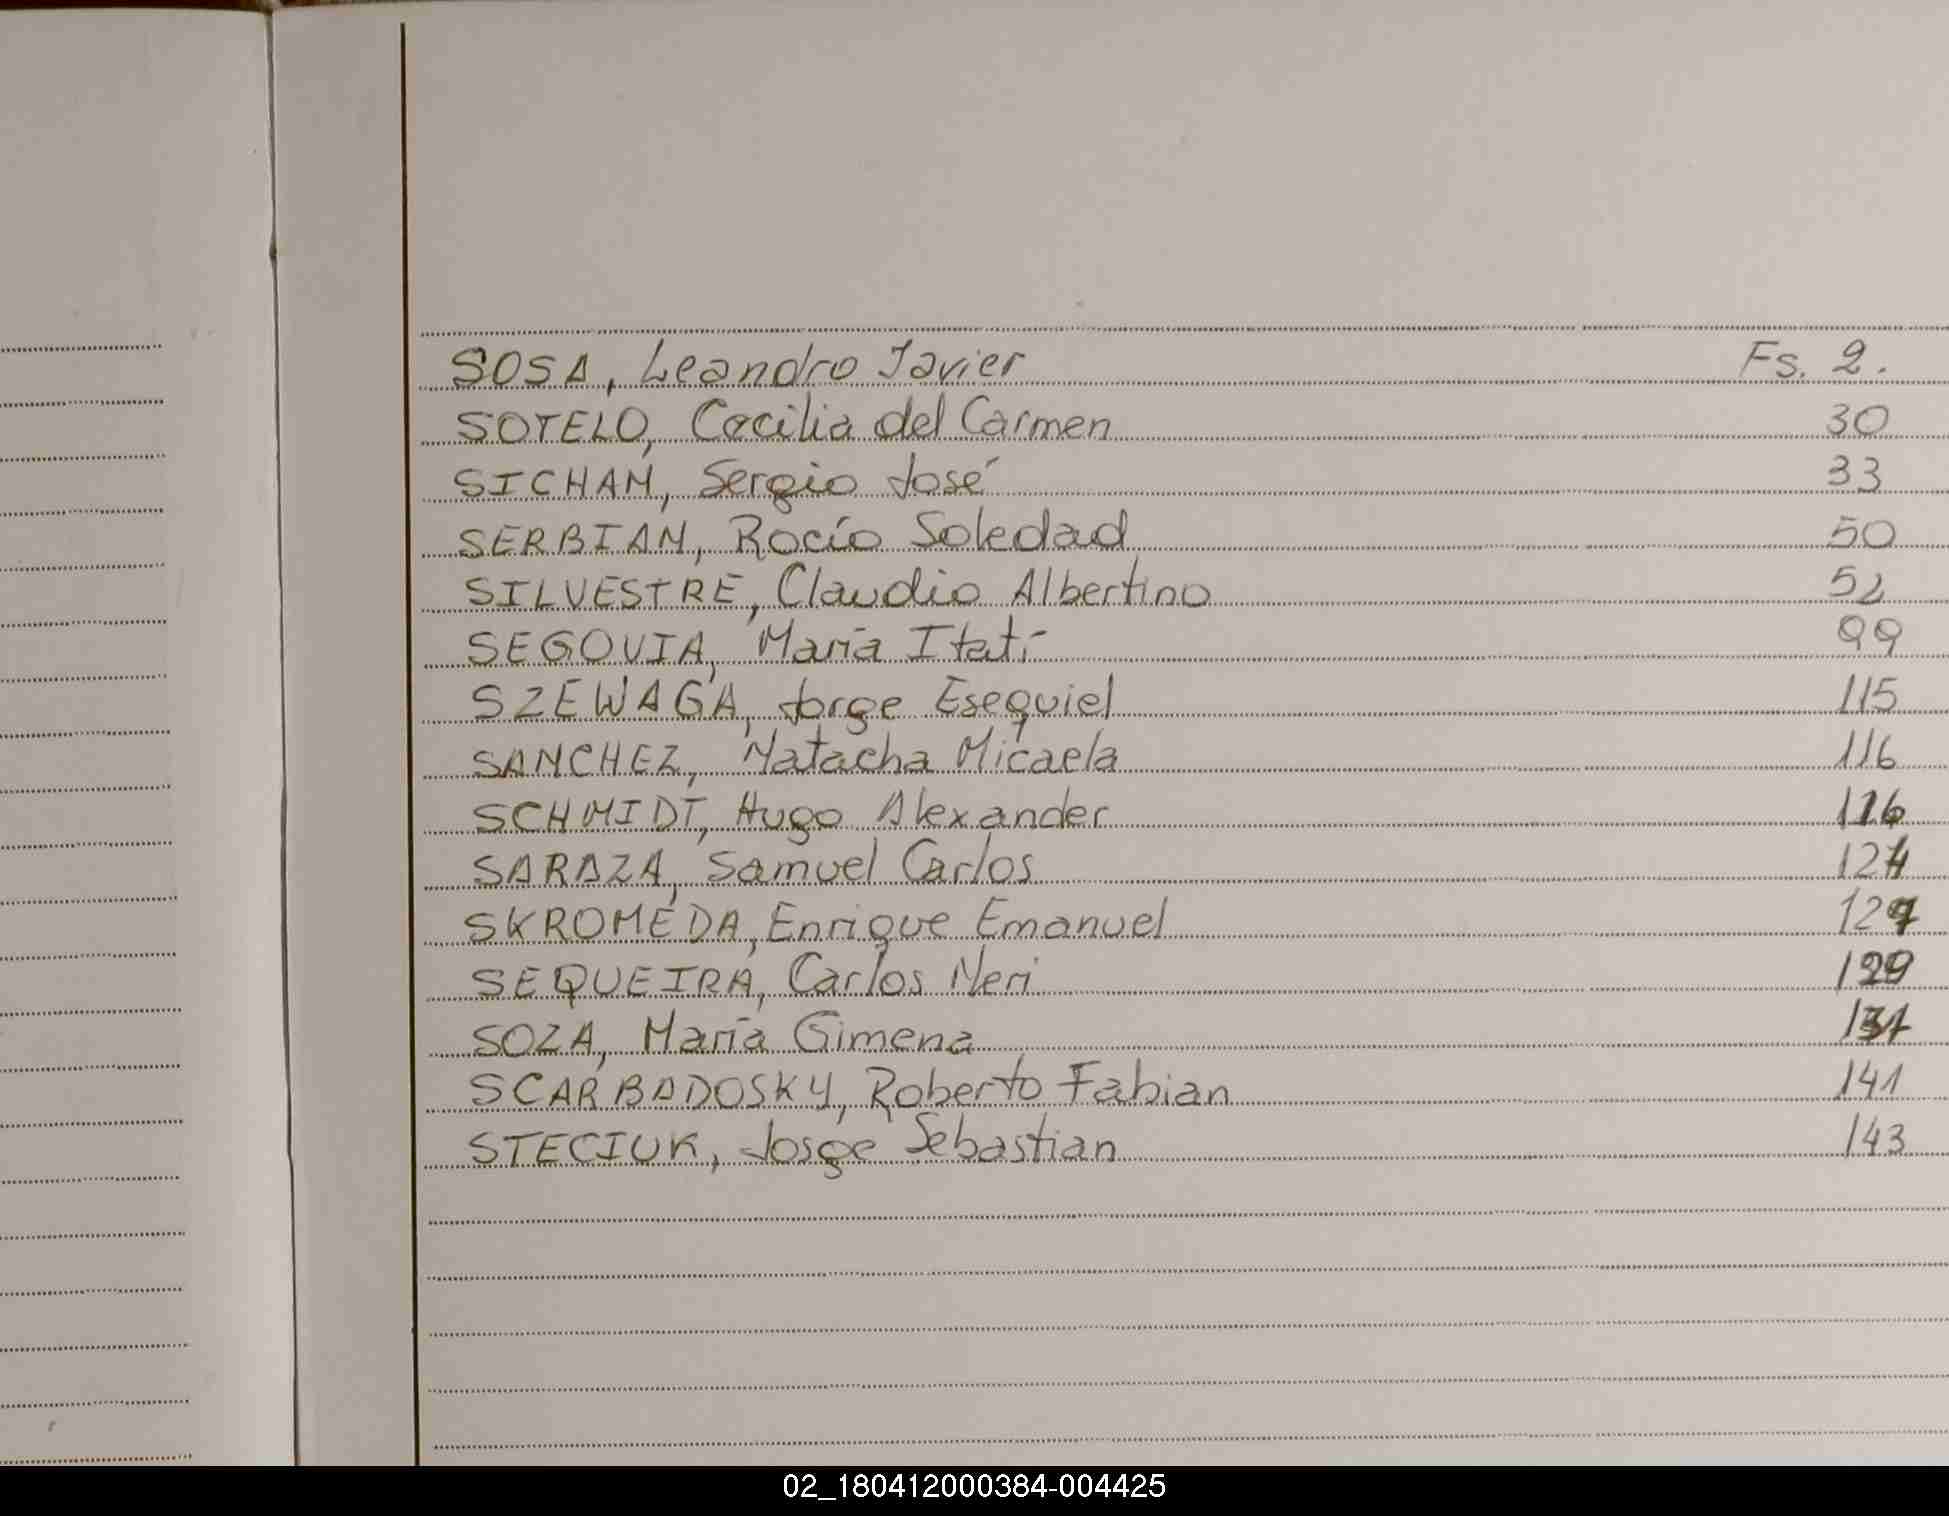 SOSA, Leandro Javier Fs. 2.
SOTELO, Cecilia del Carmen 30
SICHAN, Sergio José 33
SERBIAN, Rocío Soledad 50
SILVESTRE, Claudio Albertino 52
SEGOVIA, María Itatí 99
SZEWAGA, Jorge Esequiel 115
SANCHEZ, Natacha Micaela 116
SCHMIDT, Hugo Alexander
SARAZA, Samuel Carlos 124
SKROMEDA, Enrique Emanuel
SEQUEIRA, Carlos Neri 129
SOZA, María Gimena
SCARBADOSKY, Roberto Fabian 141
STECIUK, Josge Sebastian 143
02_180412000384-004425